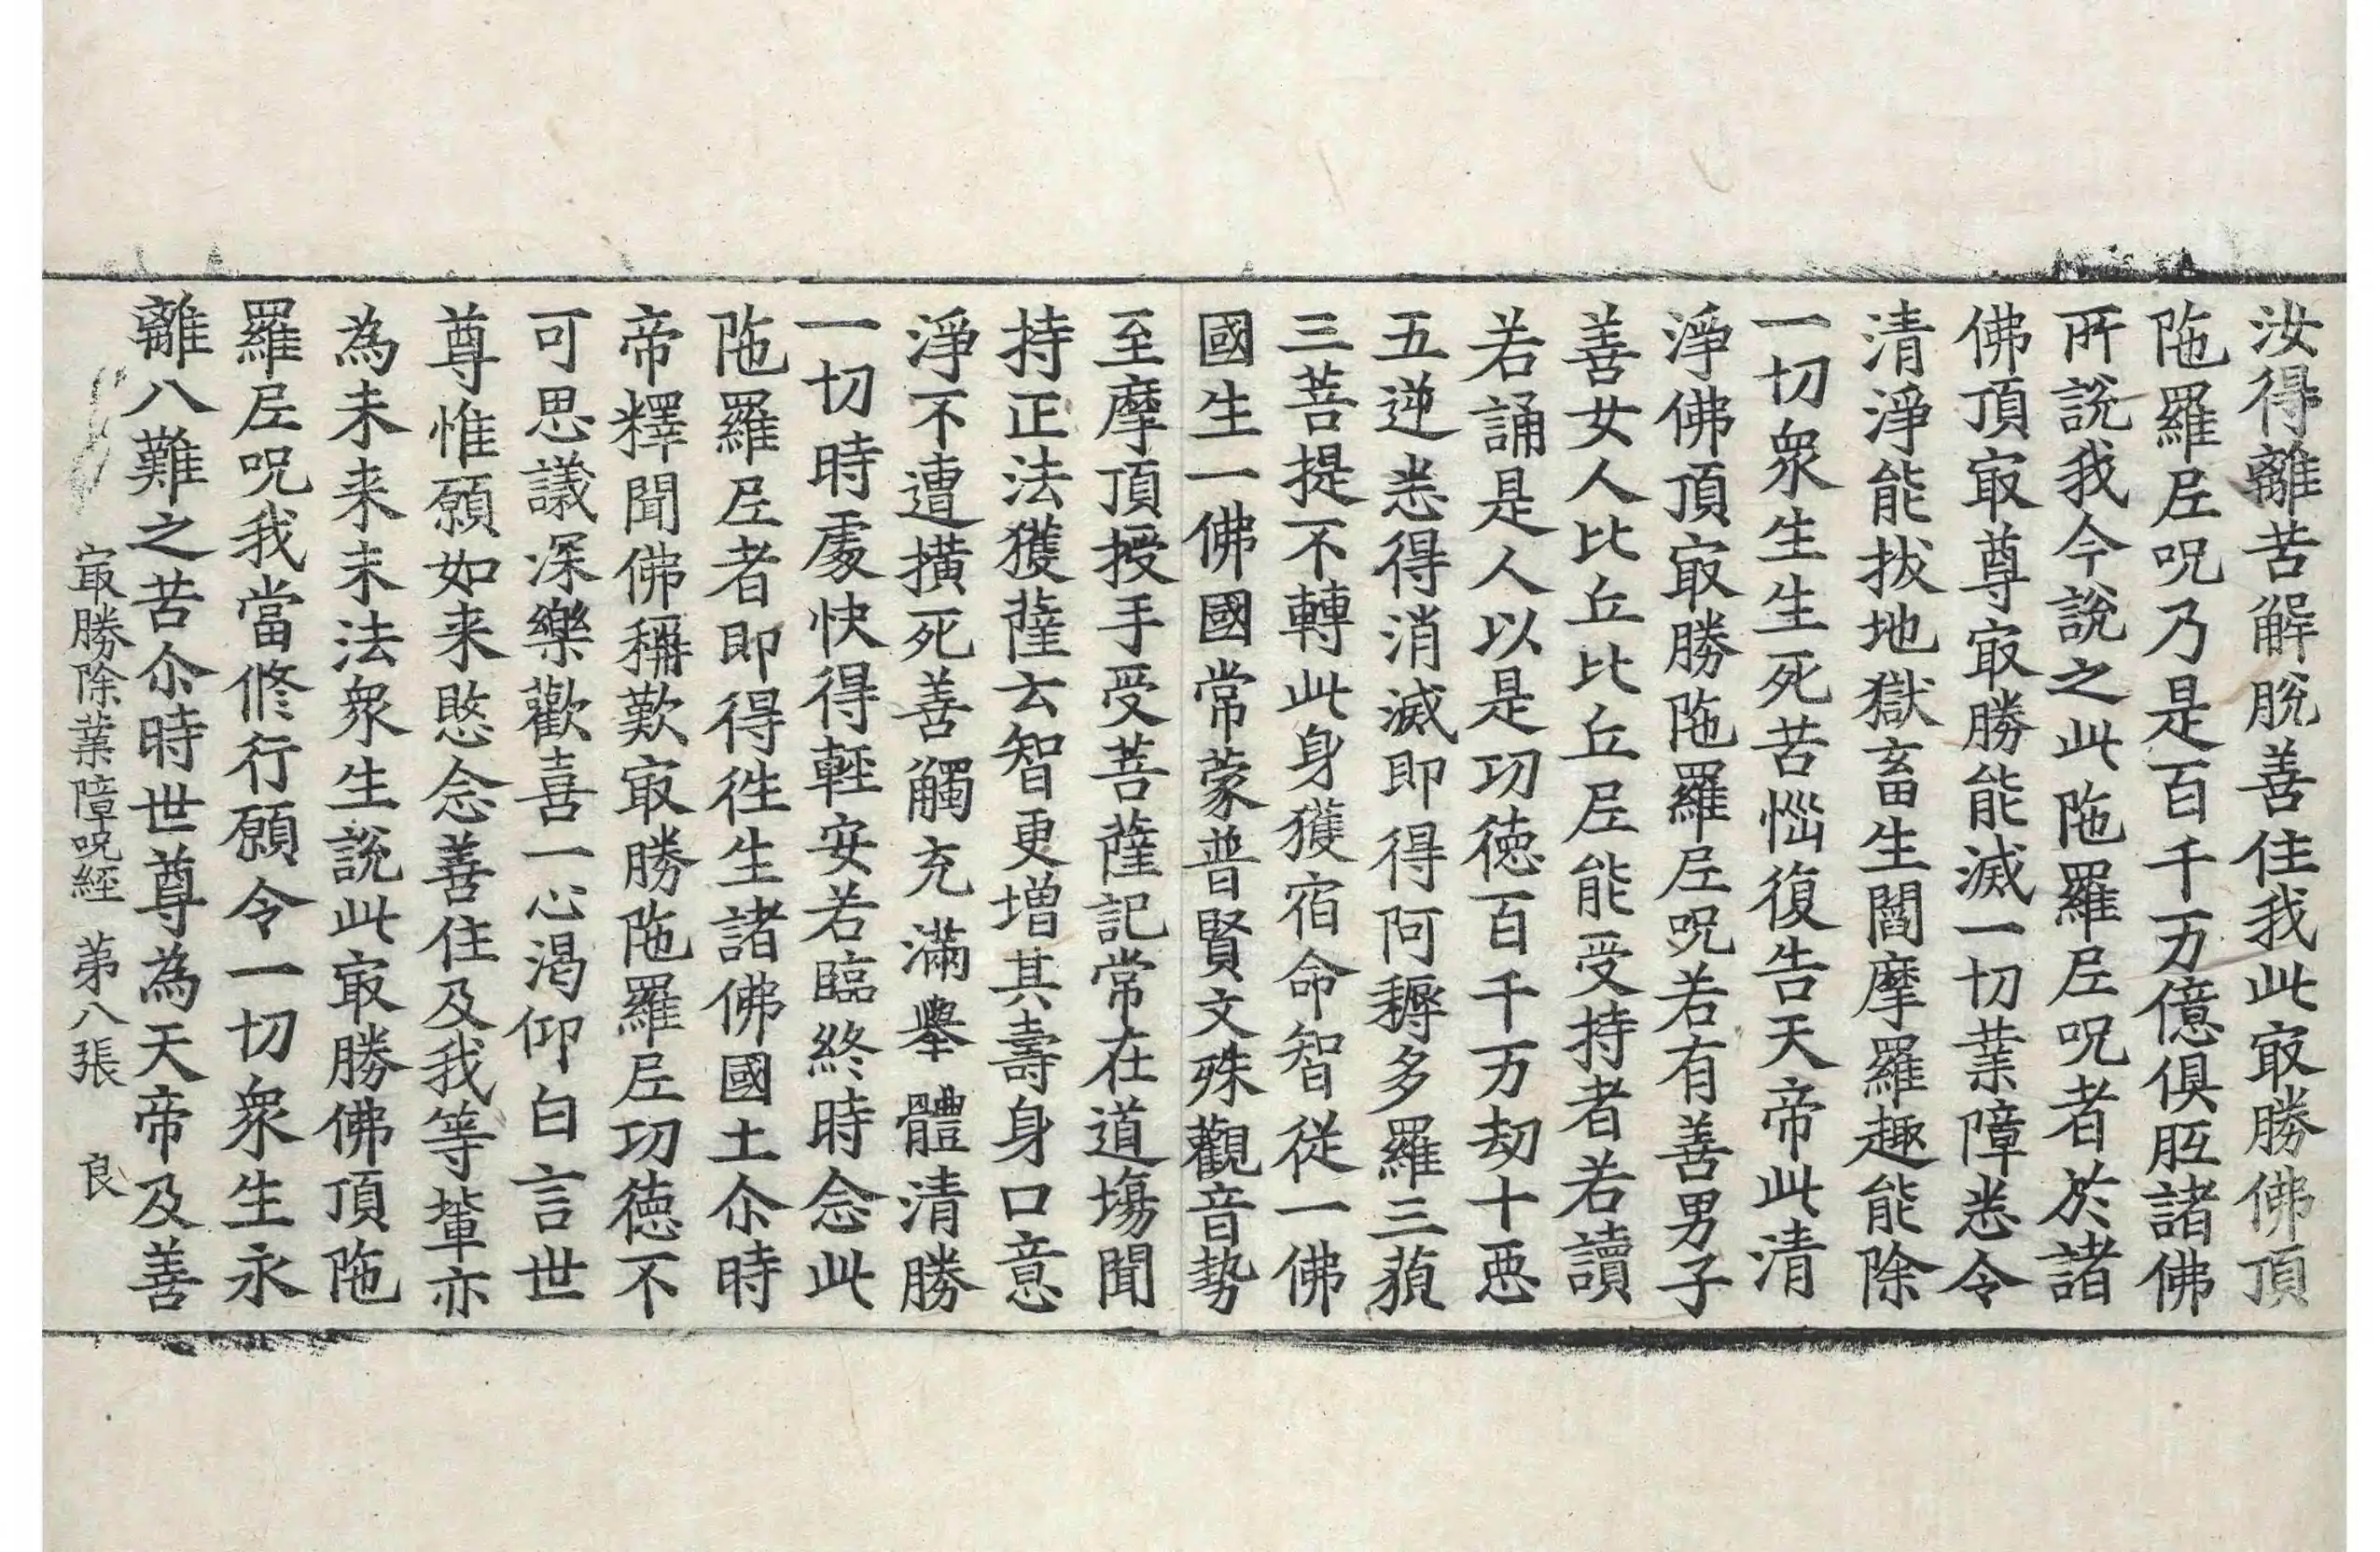 汝得離苦解脫善住我此㝡勝佛頂
陁羅尼呪乃是百千万億俱胝諸佛
所說我今說之此陁羅尼呪者於諸
佛頂㝡尊㝡勝能滅一切業障悉令
清淨能拔地獄畜生閻摩羅趣能除
一切衆生生死苦惱復告天帝此清
淨佛頂㝡勝陁羅尼呪若有善男子
善女人比丘比丘尼能受持者若讀
若誦是人以是功德百千万劫十惡
五逆悉得消滅即得阿耨多羅三藐
三菩提不轉此身獲宿命智從一佛
國生一佛國常蒙普賢文殊觀音勢
至摩頂授手受菩薩記常在道場聞
持正法獲薩云智更增其壽身口意
淨不遭橫死善觸充滿舉體清勝
一切時處快得輕安若臨終時念此
陁羅尼者即得往生諸佛國土尒時
帝釋聞佛稱歎㝡勝陁羅尼功德不
可思議深樂歡喜一心渴仰白言世
尊惟願如来愍念善住及我等輩亦
為未来末法衆生說此㝡勝佛頂陁
羅尼呪我當修行願令一切衆生永
離八難之苦尒時世尊為天帝及善
㝡勝除業障呪経 苐八張 良